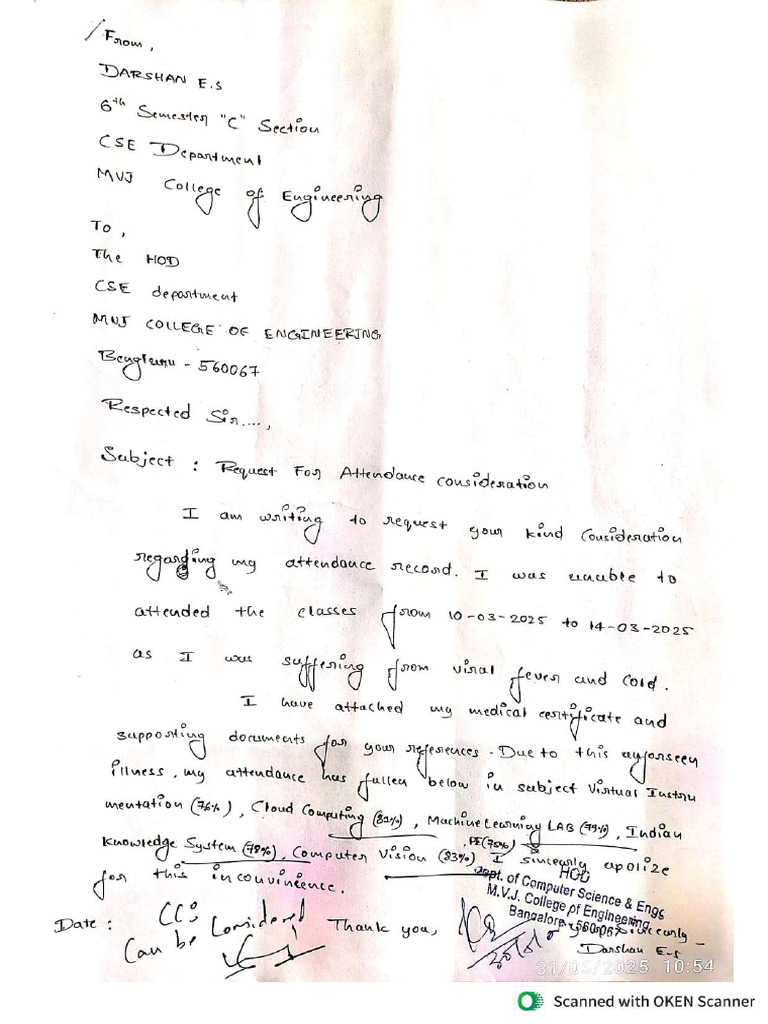 From,
DARSHAN E.S
6th Semester "C" Section
CSE Department
MVJ College of Engineering
To,
The HOD
CSE department
MVJ COLLEGE OF ENGINEERING
Bengluru - 560067
Respected Sir....,
Subject : Request For Attendance consideration
I am writing to request your kind consideration
regarding my attendance record. I was unable to
attended the classes from 10-03-2025 to 14-03-2025
as I was suffering from viral fever and cold.
I have attached my medical certificate and
supporting documents for your references. Due to this
illness, my attendance has fallen below in subject Virtual Instru
mentation (76%), Cloud Computing (81%), Machine Learning LAB (79%), Indian
PE(75%)
Knowledge System (78%), Computer Vision (83%) I sincerly apolize
for this inconvinience.
HOD
Dept. of Computer Science & Engg
M.V.J. College of Engineering
Bangalore - 560 067
Date :
CCS
Can be Considered
Thank you,
Darshan E.S
31/05/2025 10:54
Scanned with OKEN Scanner